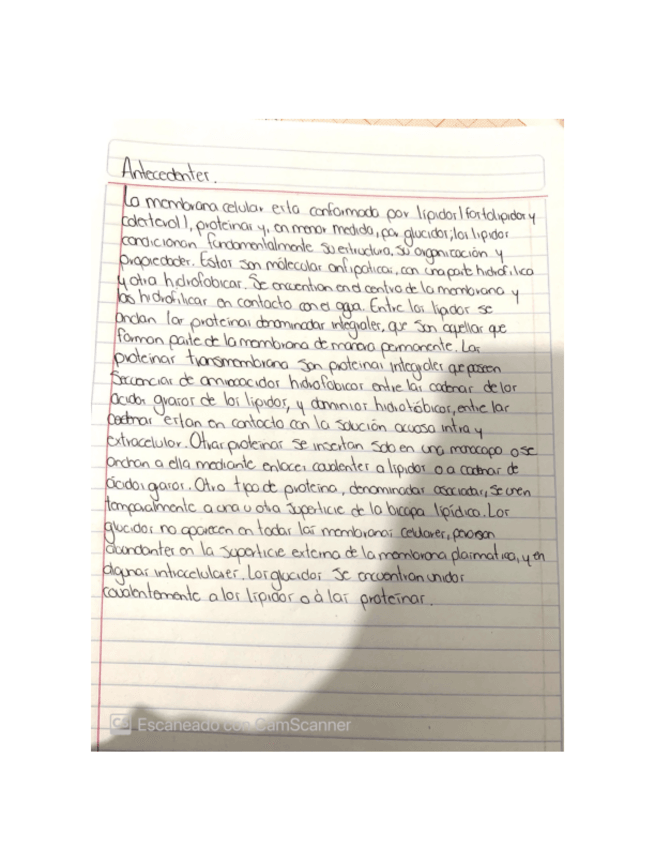 Antecedentes.
La membrana celular esta conformada por lipidos (fosfolipidos y
colesterol), proteinas y, en menor medida, por glucidos; los lipidos
condicionan fundamentalmente su estructura, su organización y
propiedades. Estas son móleculas anfipaticas, con una parte hidrofilica
y otra hidrofobicas. Se encuentran en el centro de la membrana y
las hidrofilicas en contacto con el agua. Entre los lipidos se
anclan las proteinas denominadas integrales, que son aquellas que
forman parte de la membrana de manera permanente. Las
proteinas transmembrana son proteinas integrales que poseen
secuencias de aminoacidos hidrofobicos entre las cadenas de los
ácidos grasos de los lípidos, y dominios entre las
cadenas estan en contacto con la solución acuosa intra y
extracelular. Otras proteinas se insertan solo en una monocapa o se
anclan a ella mediante enlaces covalentes a lipidos o a cadenas de
ácidos grasos. Otro tipo de proteina, denominadas asociadas, se unen
temporalmente a una u otra superficie de la bicapa lipídica. Los
glucidos no aparecen en todas las membranas celulares, pero son
abundantes en la superficie externa de la membrana plasmatica, y en
algunas intracelulares. Los glucidos se encuentran unidos
covalentemente a los lípidos o a las proteínas.
CS Escaneado con CamScanner